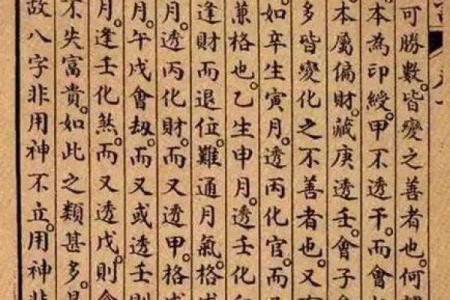 可勝數。皆變之善者也。何
本為印綬。甲不透干。而會
本屬偏財。藏庚透壬。會子
多皆變化之不善者也。又
如辛生寅月。透丙化官。而
兼格也。乙生申月。透壬化
逢財而退位。難通月氣。格
月。透丙化財。而又透甲。格成
月。午戌會劫。而又或透壬則
月。逢壬化煞。而又透戊。則
不失富貴。如此之類甚多。是
故八字非用神不立。用神非